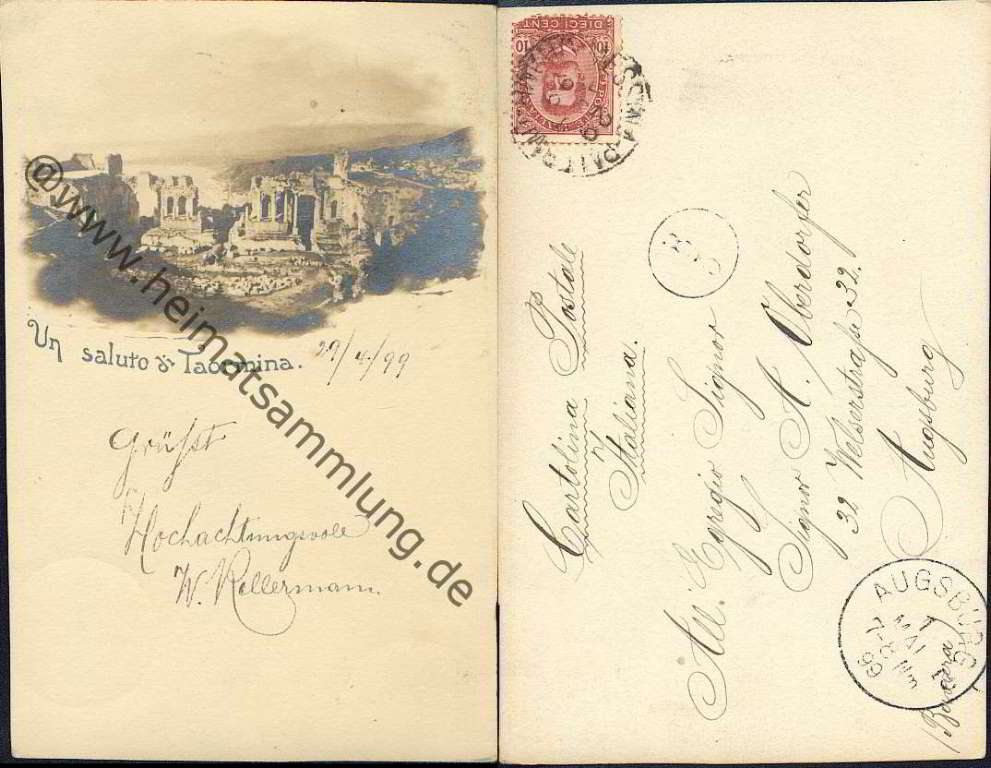 Un saluto di Taormina.
29/4/99
Grüsst
Hochachtungsvoll
W. Kellermann.
@www.heimatsammlung.de
DIECI CENT
10 10
MESSINA-PALERMO
29
Cartolina Postale
Italiana.
All'. Egregio Signor
Signor A. Oberdorfer
32 Welserstraße 32.
Augsburg
(Baviera
AUGSBURG
1
MAI
7-8 Nm
99